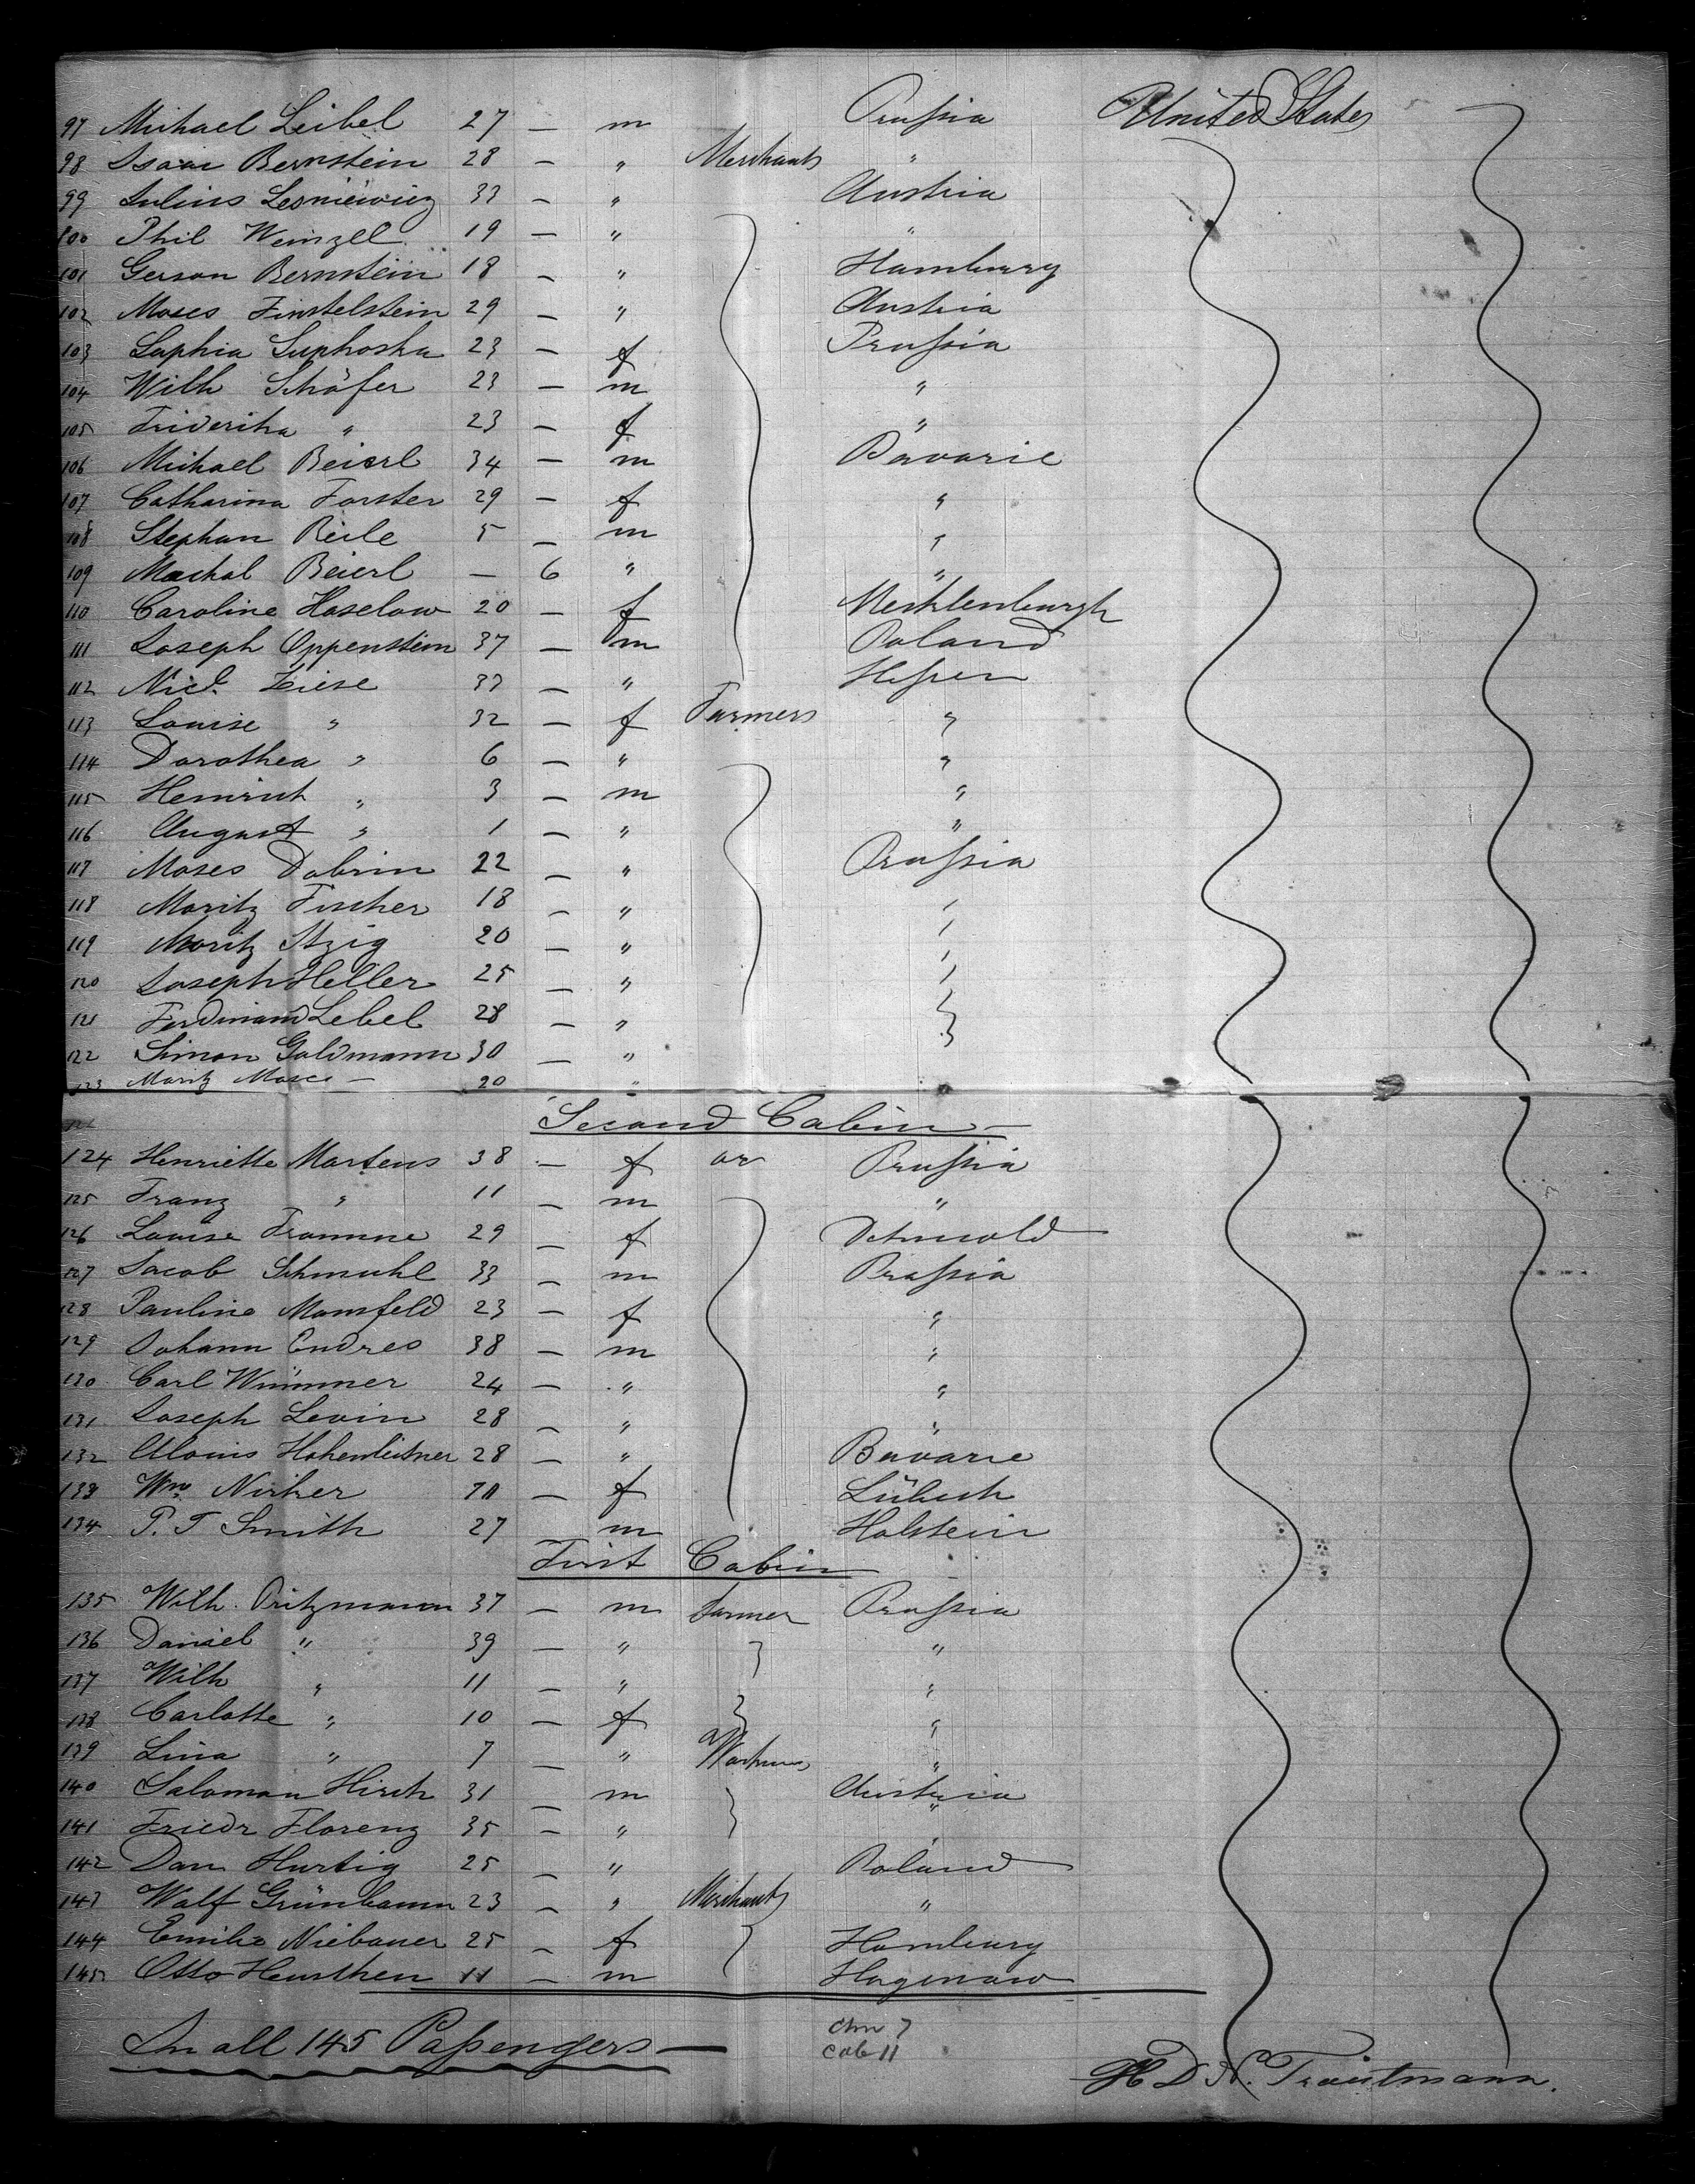 97 Michael Leibel 27 — m Prussia United States
98 Isaac Bernstein 28 — " Merchants "
99 Julius Lesniewicz 33 — " Austria
100 Phil Weinzel 19 — " "
101 Gerson Bernstein 18 — " Hamburg
102 Moses Finstelstein 29 — " Austria
103 Sophia Suphoska 23 — f Prussia
104 Wilh Schäfer 23 — m "
105 Friderika " 23 — f "
106 Michael Beierl 34 — m Bavarie
107 Catharina Forster 29 — f "
108 Stephan Beile 5 — m "
109 Machal Beierl — 6 " "
110 Caroline Haselow 20 — f Mecklenburgh
111 Joseph Oppenstein 37 — m Poland
112 Nicl. Ziese 33 — " Hessen
113 Louise " 32 — f Farmers "
114 Dorothea " 6 — " "
115 Heinrich " 3 — m "
116 August " 1 — " "
117 Moses Dobrin 22 — " Prussia
118 Moritz Fischer 18 — " "
119 Moritz Itzig 20 — " "
120 Joseph Heller 25 — " "
121 Ferdinand Lebel 28 — " "
122 Simon Goldmann 30 — " "
123 Moritz Moses — 20 "
Second Cabin —
124 Henriette Martens 38 — f or Prussia
125 Franz " 11 — m "
126 Louise Fromme 29 — f Detmold
127 Jacob Schmuhl 33 — m Prussia
128 Pauline Mansfeld 23 — f "
129 Johann Endres 38 — m "
130 Carl Wimmer 24 — " "
131 Joseph Levin 28 — " "
132 Alouis Hohenleitner 28 — " Bavarie
133 Wm. Nirker — f Lübeck
134 P. T Smith 27 m Holstein
First Cabin
135 Wilh. Pritzmann 37 — m Farmer Prussia
136 Daniel " 39 — " "
137 Wilh " 11 — " "
138 Carlotte " 10 — f "
139 Lina " 7 — " "
140 Salomon Hirch 31 — m Austria
141 Friedr Florenz 35 — " "
142 Dan Hurtig 25 — " Poland
143 Wolf Grünbaum 23 — " Merchants "
144 Emilie Niebauer 25 — f Hamburg
145 Otto Hensthen 11 — m Hagenow
In all 145 Passengers —
chn 7
cab 11
H D N. Trautmann.